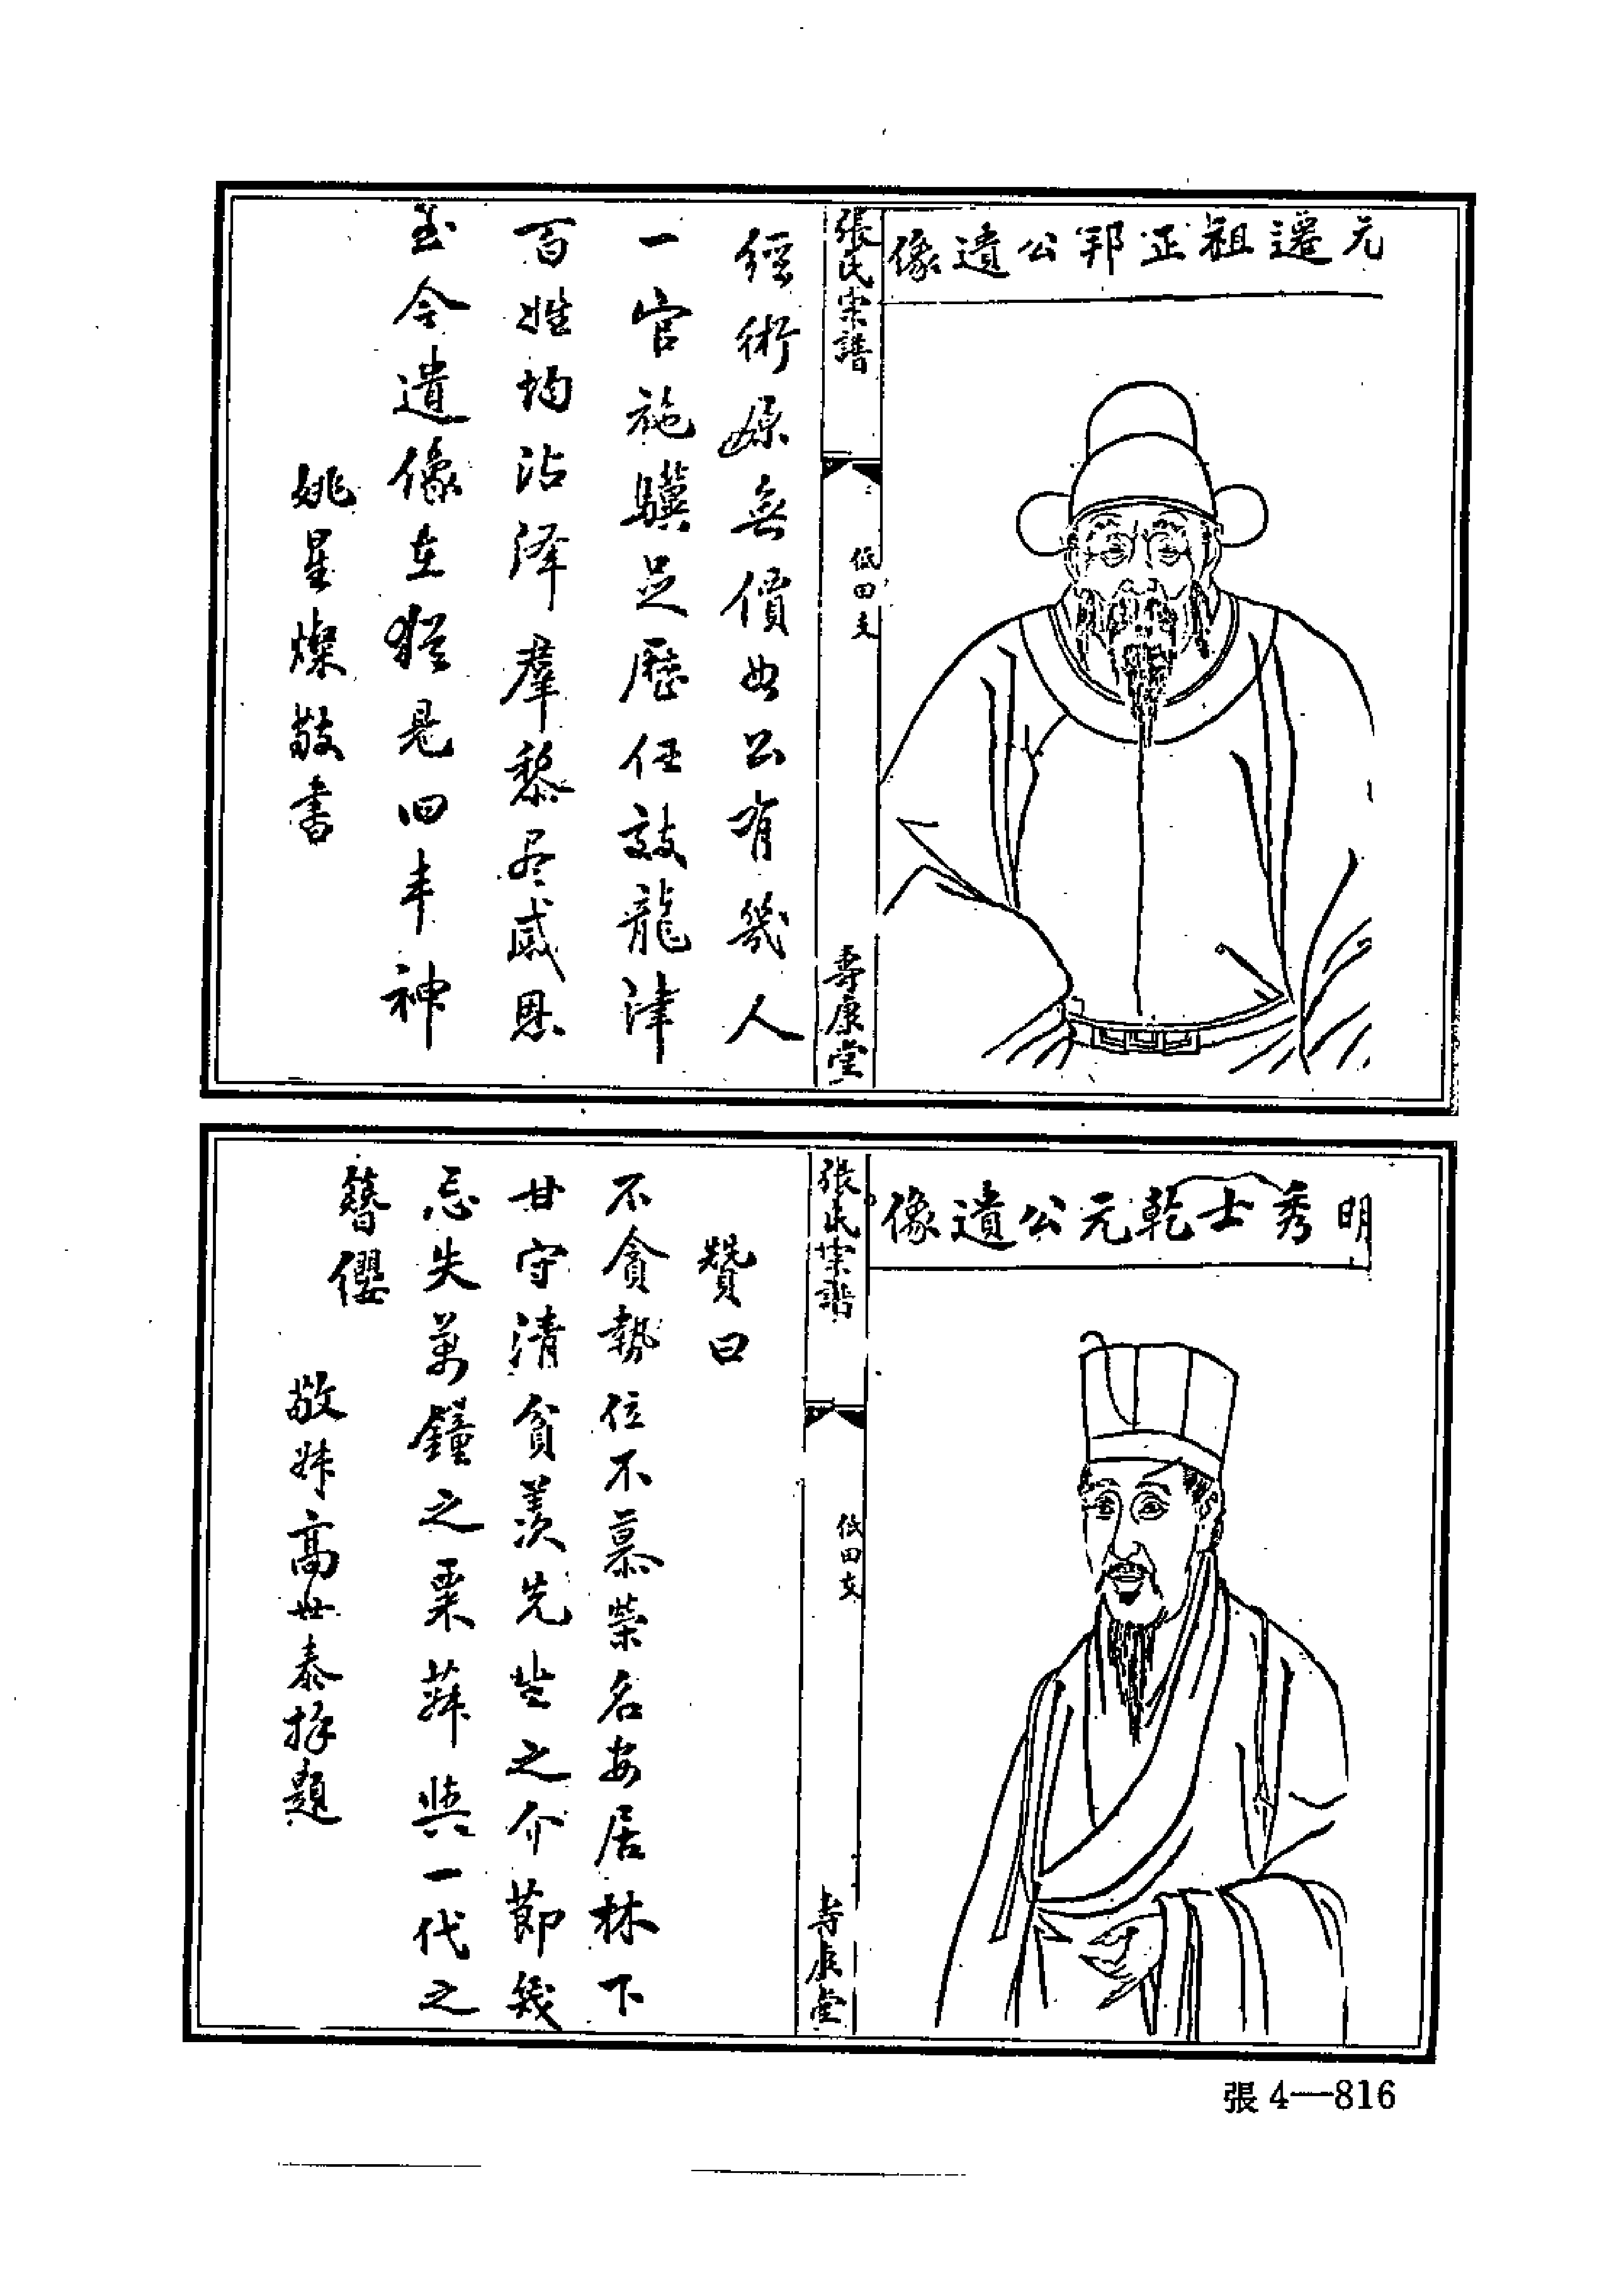 元遷祖正邦公遺像
張氏宗譜
低田支
壽康堂
經術原無價如公有幾人
一官施驥足歷任鼓龍津
百姓均沾澤羣黎尽感恩
至今遺像在猶是旧丰神
姚星燦敬書
明秀士乾元公遺像
張氏宗譜
低田支
壽康堂
贊曰
不貪勢位不慕榮名安居林下
甘守清貧羨先生之介節幾
忘失萬鐘之粟莽與一代之
簪纓
敬妹高世泰拜題
張4—816